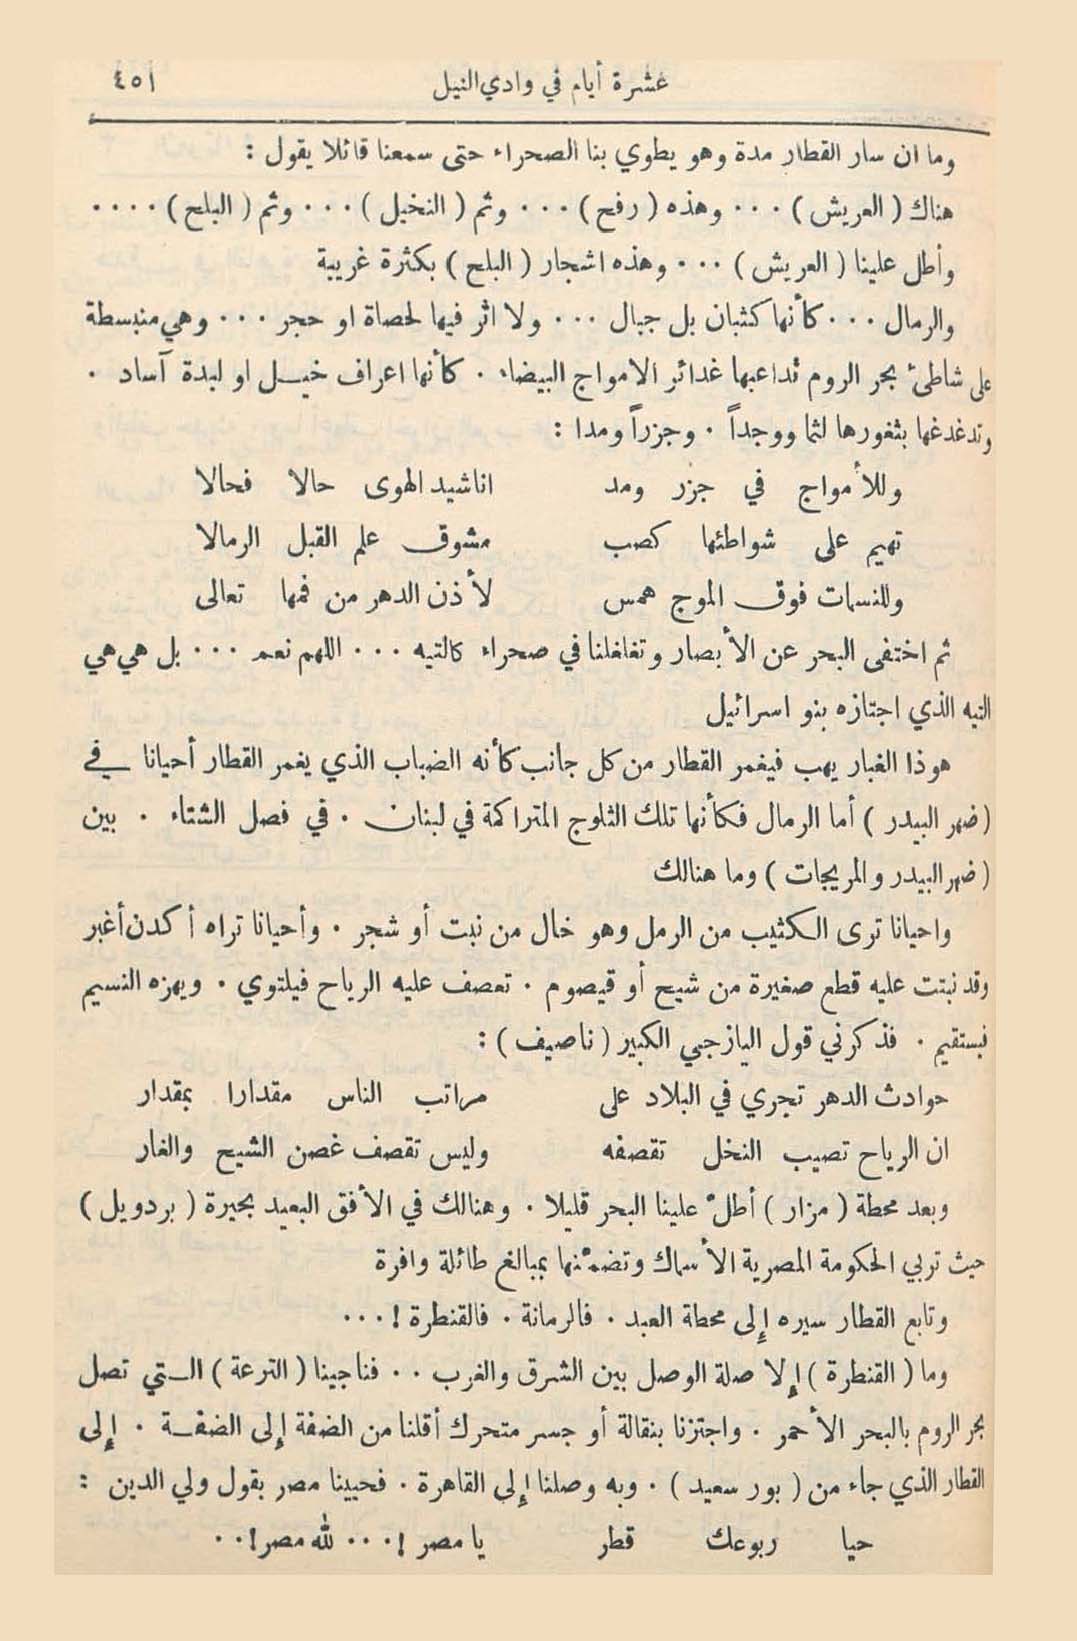 عشرة أيام في وادي النيل ٤٥١
وما ان سار القطار مدة وهو يطوي بنا الصحراء حتى سمعنا قائلا يقول :
هناك ( العريش ) ٠٠٠ وهذه ( رفح ) ٠٠٠ وثم ( النخيل ) ٠٠٠ وثم ( البلح ) ٠٠٠٠
وأطل علينا ( العريش ) ٠٠٠ وهذه اشجار ( البلح ) بكثرة غريبة
والرمال ٠٠٠ كأنها كثبان بل جبال ٠٠٠ ولا اثر فيها لحصاة او حجر ٠٠٠ وهي منبسطة
على شاطئ بحر الروم تداعبها غدائر الامواج البيضاء ٠ كأنها اعراف خيل او لبدة آساد ٠
وتدغدغها بثغورها لثما ووجداً ٠ وجزراً ومدا :
وللأمواج في جزر ومد اناشيد الهوى حالا فحالا
تهيم على شواطئها كصب مشوق علم القبل الرمالا
وللنسمات فوق الموج همس لأذن الدهر من فمها تعالى
ثم اختفى البحر عن الأبصار وتغلغلنا في صحراء كالتيه ٠٠٠ اللهم نعم ٠٠٠ بل هي هي
التيه الذي اجتازه بنو اسرائيل
هوذا الغبار يهب فيغمر القطار من كل جانب كأنه الضباب الذي يغمر القطار أحيانا في
( ضهر البيدر ) أما الرمال فكأنها تلك الثلوج المتراكمة في لبنان ٠ في فصل الشتاء ٠ بين
( ضهر البيدر والمريجات ) وما هنالك
واحيانا ترى الكثيب من الرمل وهو خال من نبت أو شجر ٠ وأحيانا تراه أكدن أغبر
وقد نبتت عليه قطع صغيرة من شيح أو قيصوم ٠ تعصف عليه الرياح فيلتوي ٠ ويهزه النسيم
فيستقيم ٠ فذكرني قول اليازجي الكبير ( ناصيف ) :
حوادث الدهر تجري في البلاد على مراتب الناس مقدارا بمقدار
ان الرياح تصيب النخل تقصفه وليس تقصف غصن الشيح والغار
وبعد محطة ( مزار ) أطلّ علينا البحر قليلا ٠ وهنالك في الأفق البعيد بحيرة ( بردويل )
حيث تربي الحكومة المصرية الأسماك وتضمّنها بمبالغ طائلة وافرة
وتابع القطار سيره إلى محطة العبد ٠ فالرمانة ٠ فالقنطرة ! ٠٠٠
وما ( القنطرة ) إلا صلة الوصل بين الشرق والغرب ٠٠ فناجينا ( الترعة ) التي تصل
بحر الروم بالبحر الأحمر ٠ واجتزنا بنقالة أو جسر متحرك أقلنا من الضفة إلى الضفة ٠ إلى
القطار الذي جاء من ( بور سعيد ) ٠ وبه وصلنا إلى القاهرة ٠ فحيينا مصر بقول ولي الدين :
حيا ربوعك قطر يا مصر ! ٠٠٠ لله مصر ! ٠٠